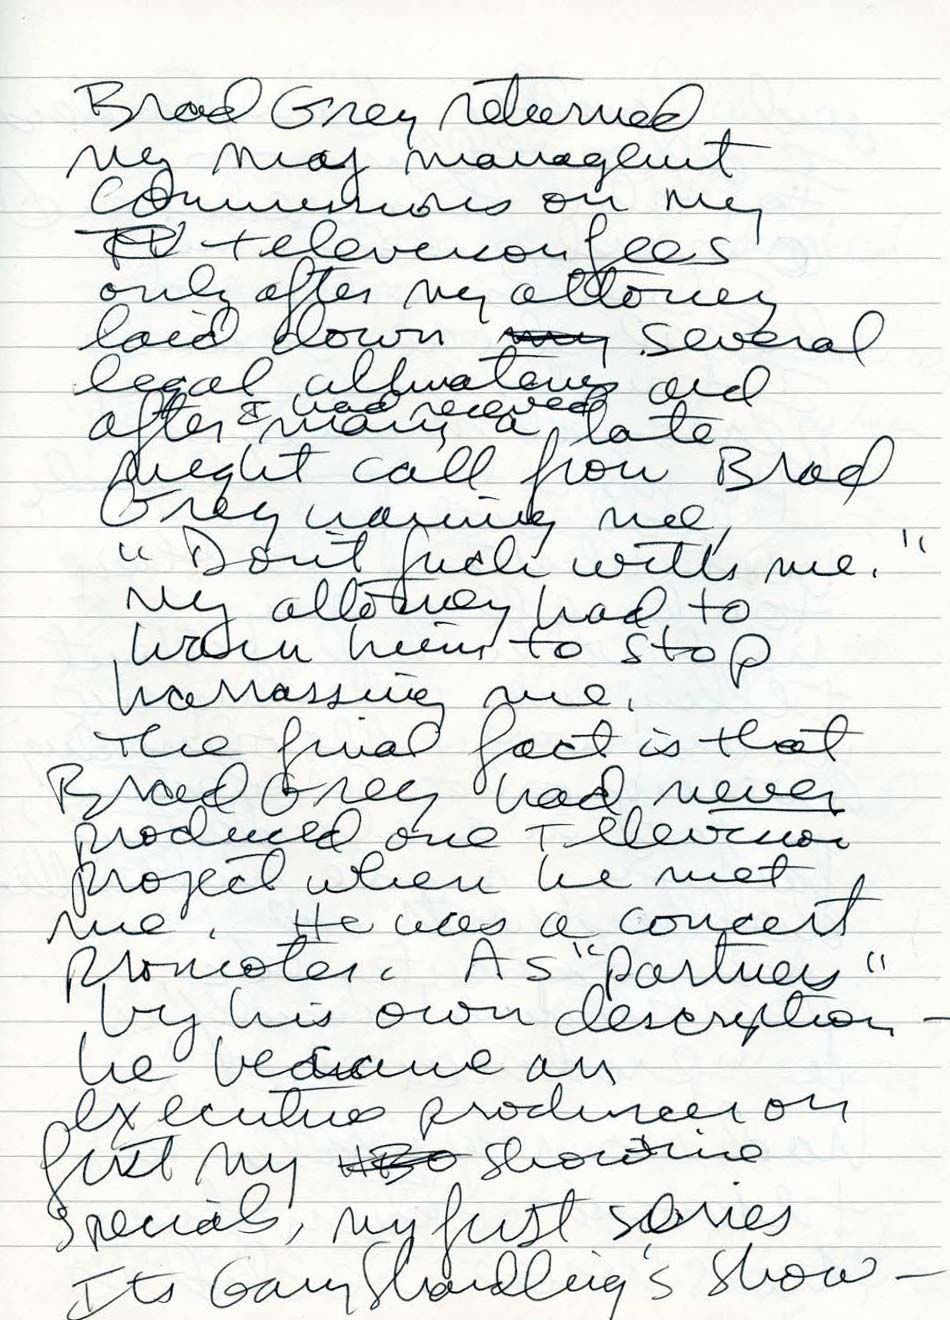 Brad Grey returned
my managment
Commissions on my
TV television fees
only after my attorney
laid down my several
legal ultimatums and
I had received
after many, a late
night call from Brad
Grey warning me,
"Don't fuck with me."
My attorney had to
warn him to stop
harrassing me.
The final fact is that
Brad Grey had never
produced one Television
project when he met
me. He was a concert
promoter. As "partners"
by his own description –
he became an
executive producer on
first my HBO Showtime
specials, my first series
Its Garry Shandling's Show –